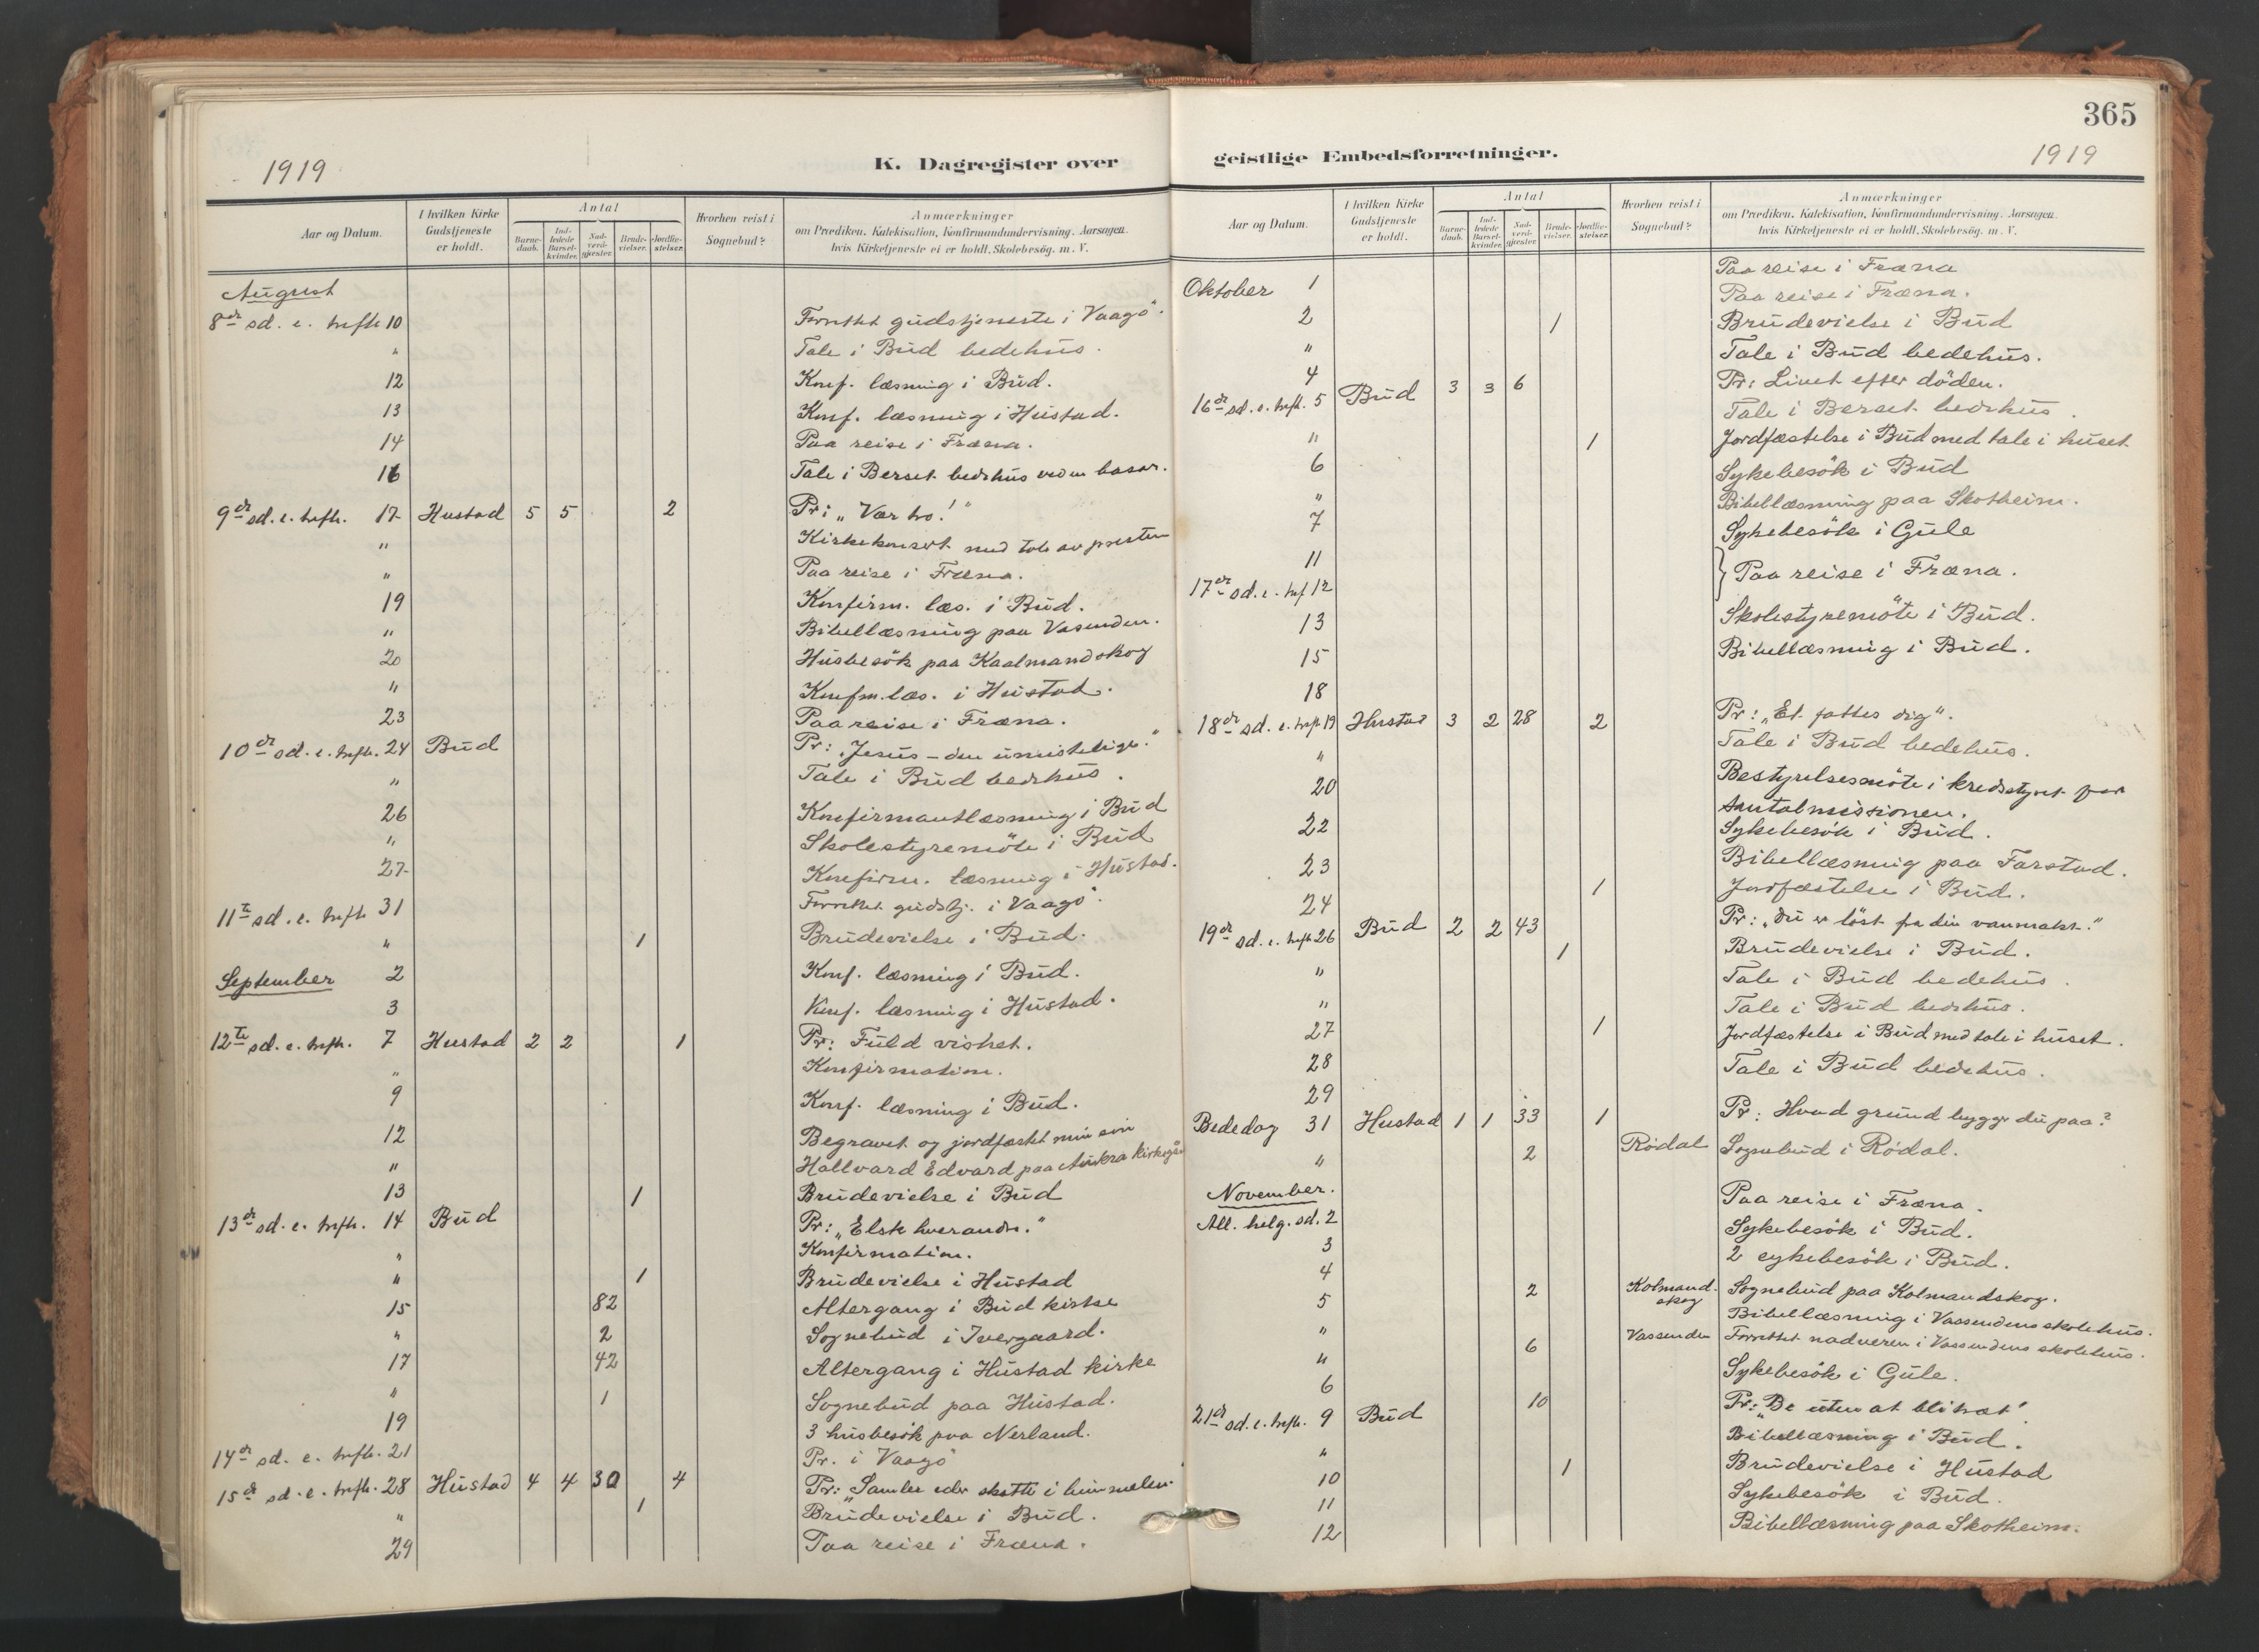 365
1919
K. Dagregister over
Aar og Datum.
I hvilken Kirke Gudstjeneste er holdt.
Antal
Barne-daab.
Ind-ledede Barsel-kvinder.
Nad-verd-gjæster.
Brude-vielser.
Jordfæ-stelser.
Hvorhen reist i Sognebud?
Anmærkninger
om Prædiken, Katekisation, Konfirmandundervisning, Aarsagen,
hvis Kirketjeneste ei er holdt, Skolebesög. m. V.
August
8de sd. e. trefh. 10 Forrettet gudstjeneste i Vaagö.
" Tale i Bud bedehus.
12 Konf. læsning i Bud.
13 Konf. læsning i Hustad.
14 Paa reise i Fræna.
16 Tale i Berset bedehus ved en basar.
9de sd. e. trefh. 17 Hustad 5 5 2 Pr: „Vær tro!"
" Kirkekonsert med tale av presten
" Paa reise i Fræna.
19 Konfirm. læs. i Bud.
" Bibellæsning paa Vasenden.
20 Husbesök paa Kaalmandskog
" Konfm. læs. i Hustad.
23 Paa reise i Fræna.
10de sd. e. trefh. 24 Bud Pr: „Jesus – den umistelige."
" Tale i Bud bedehus.
26 Konfirmantlæsning i Bud
" Skolestyremöte i Bud
27 Konfirm. læsning i Hustad.
11te sd. e. trefh. 31 Forrettet gudstj. i Vaagö.
" 1 Brudevielse i Bud.
September 2 Konf. læsning i Bud.
3 Konf. læsning i Hustad.
12te sd. e. trefh. 7 Hustad 2 2 1 Pr: Fuld vished.
" Konfirmation.
9 Konf. læsning i Bud.
12 Begravet og jordfæstet min sön
" Hallvard Edvard paa Aukra kirkegård
13 1 Brudevielse i Bud
13de sd. e. trefh. 14 Bud Pr: „Elsk hverandre."
" Konfirmation.
" 1 Brudevielse i Hustad
15 82 Altergang i Bud kirke
" 2 Sognebud i Ivergaard.
17 42 Altergang i Hustad kirke
" 1 Sognebud paa Hustad.
19 3 husbesök paa Nerland.
14de sd. e. trefh. 21 Pr. i Vaagö
15de sd. e. trefh. 28 Hustad 4 4 30 4 Pr: „Samler eder skatte i himmelen.
" 1 Brudevielse i Bud.
29 Paa reise i Fræna.
geistlige Embedsforretninger.
1919
Aar og Datum.
I hvilken Kirke Gudstjeneste er holdt.
Antal
Barne-daab.
Ind-ledede Barsel-kvinder.
Nad-verd-gjæster.
Brude-vielser.
Jordfæ-stelser.
Hvorhen reist i Sognebud?
Anmærkninger
om Prædiken, Katekisation, Konfirmandundervisning, Aarsagen,
hvis Kirketjeneste ei er holdt, Skolebesög. m. V.
Paa reise i Fræna
Oktober 1 Paa reise i Fræna.
2 1 Brudevielse i Bud
" Tale i Bud bedehus.
4
16de sd. e. trefh. 5 Bud 3 3 6 Pr: Livet efter döden.
Tale i Berset bedehus.
" 1 Jordfæstelse i Bud med tale i huset
6 Sykebesök i Bud
" Bibellæsning paa Skotheim.
7 Sykebesök i Gule
11
17de sd. e. tref 12 } Paa reise i Fræna.
13 Skolestyremöte i Bud.
15 Bibellæsning i Bud.
18
18de sd. e. trefh. 19 Hustad 3 2 28 2 Pr: „Et fattes dig".
" Tale i Bud bedehus.
20 Bestyrelsesmöte i kredsstyret for
Santalmissionen.
22 Sykebesök i Bud.
23 Bibellæsning paa Farstad.
24 1 Jordfæstelse i Bud.
19de sd. e. trefh. 26 Bud 2 2 43 Pr: „Du er löst fra din vanmakt."
1 Brudevielse i Bud.
" Tale i Bud bedehus.
" Tale i Bud bedehus.
27 1 Jordfæstelse i Bud med tale i huset.
28 Tale i Bud bedehus.
29
Bededag 31 Hustad 1 1 33 1 Pr: Hvad grund bygger du paa?
" 2 Rødal Sognebud i Rødal.
November.
Paa reise i Fræna.
All. helg. sd. 2 Sykebesök i Bud.
3 2 sykebesök i Bud.
4
5 2 Kolmandskog Sognebud paa Kolmandskog.
Bibellæsning i Vassendens skolehus.
" 6 Vassenden Forrettet nadveren i Vassendens skolehus.
" Sykebesök i Gule.
6
21de sd. e. trefh. 9 Bud 10 Pr: „Be uten at bli træt".
" Bibellæsning i Bud.
1 Brudevielse i Hustad
10 Sykebesök i Bud.
11 Bibellæsning paa Skotheim.
12